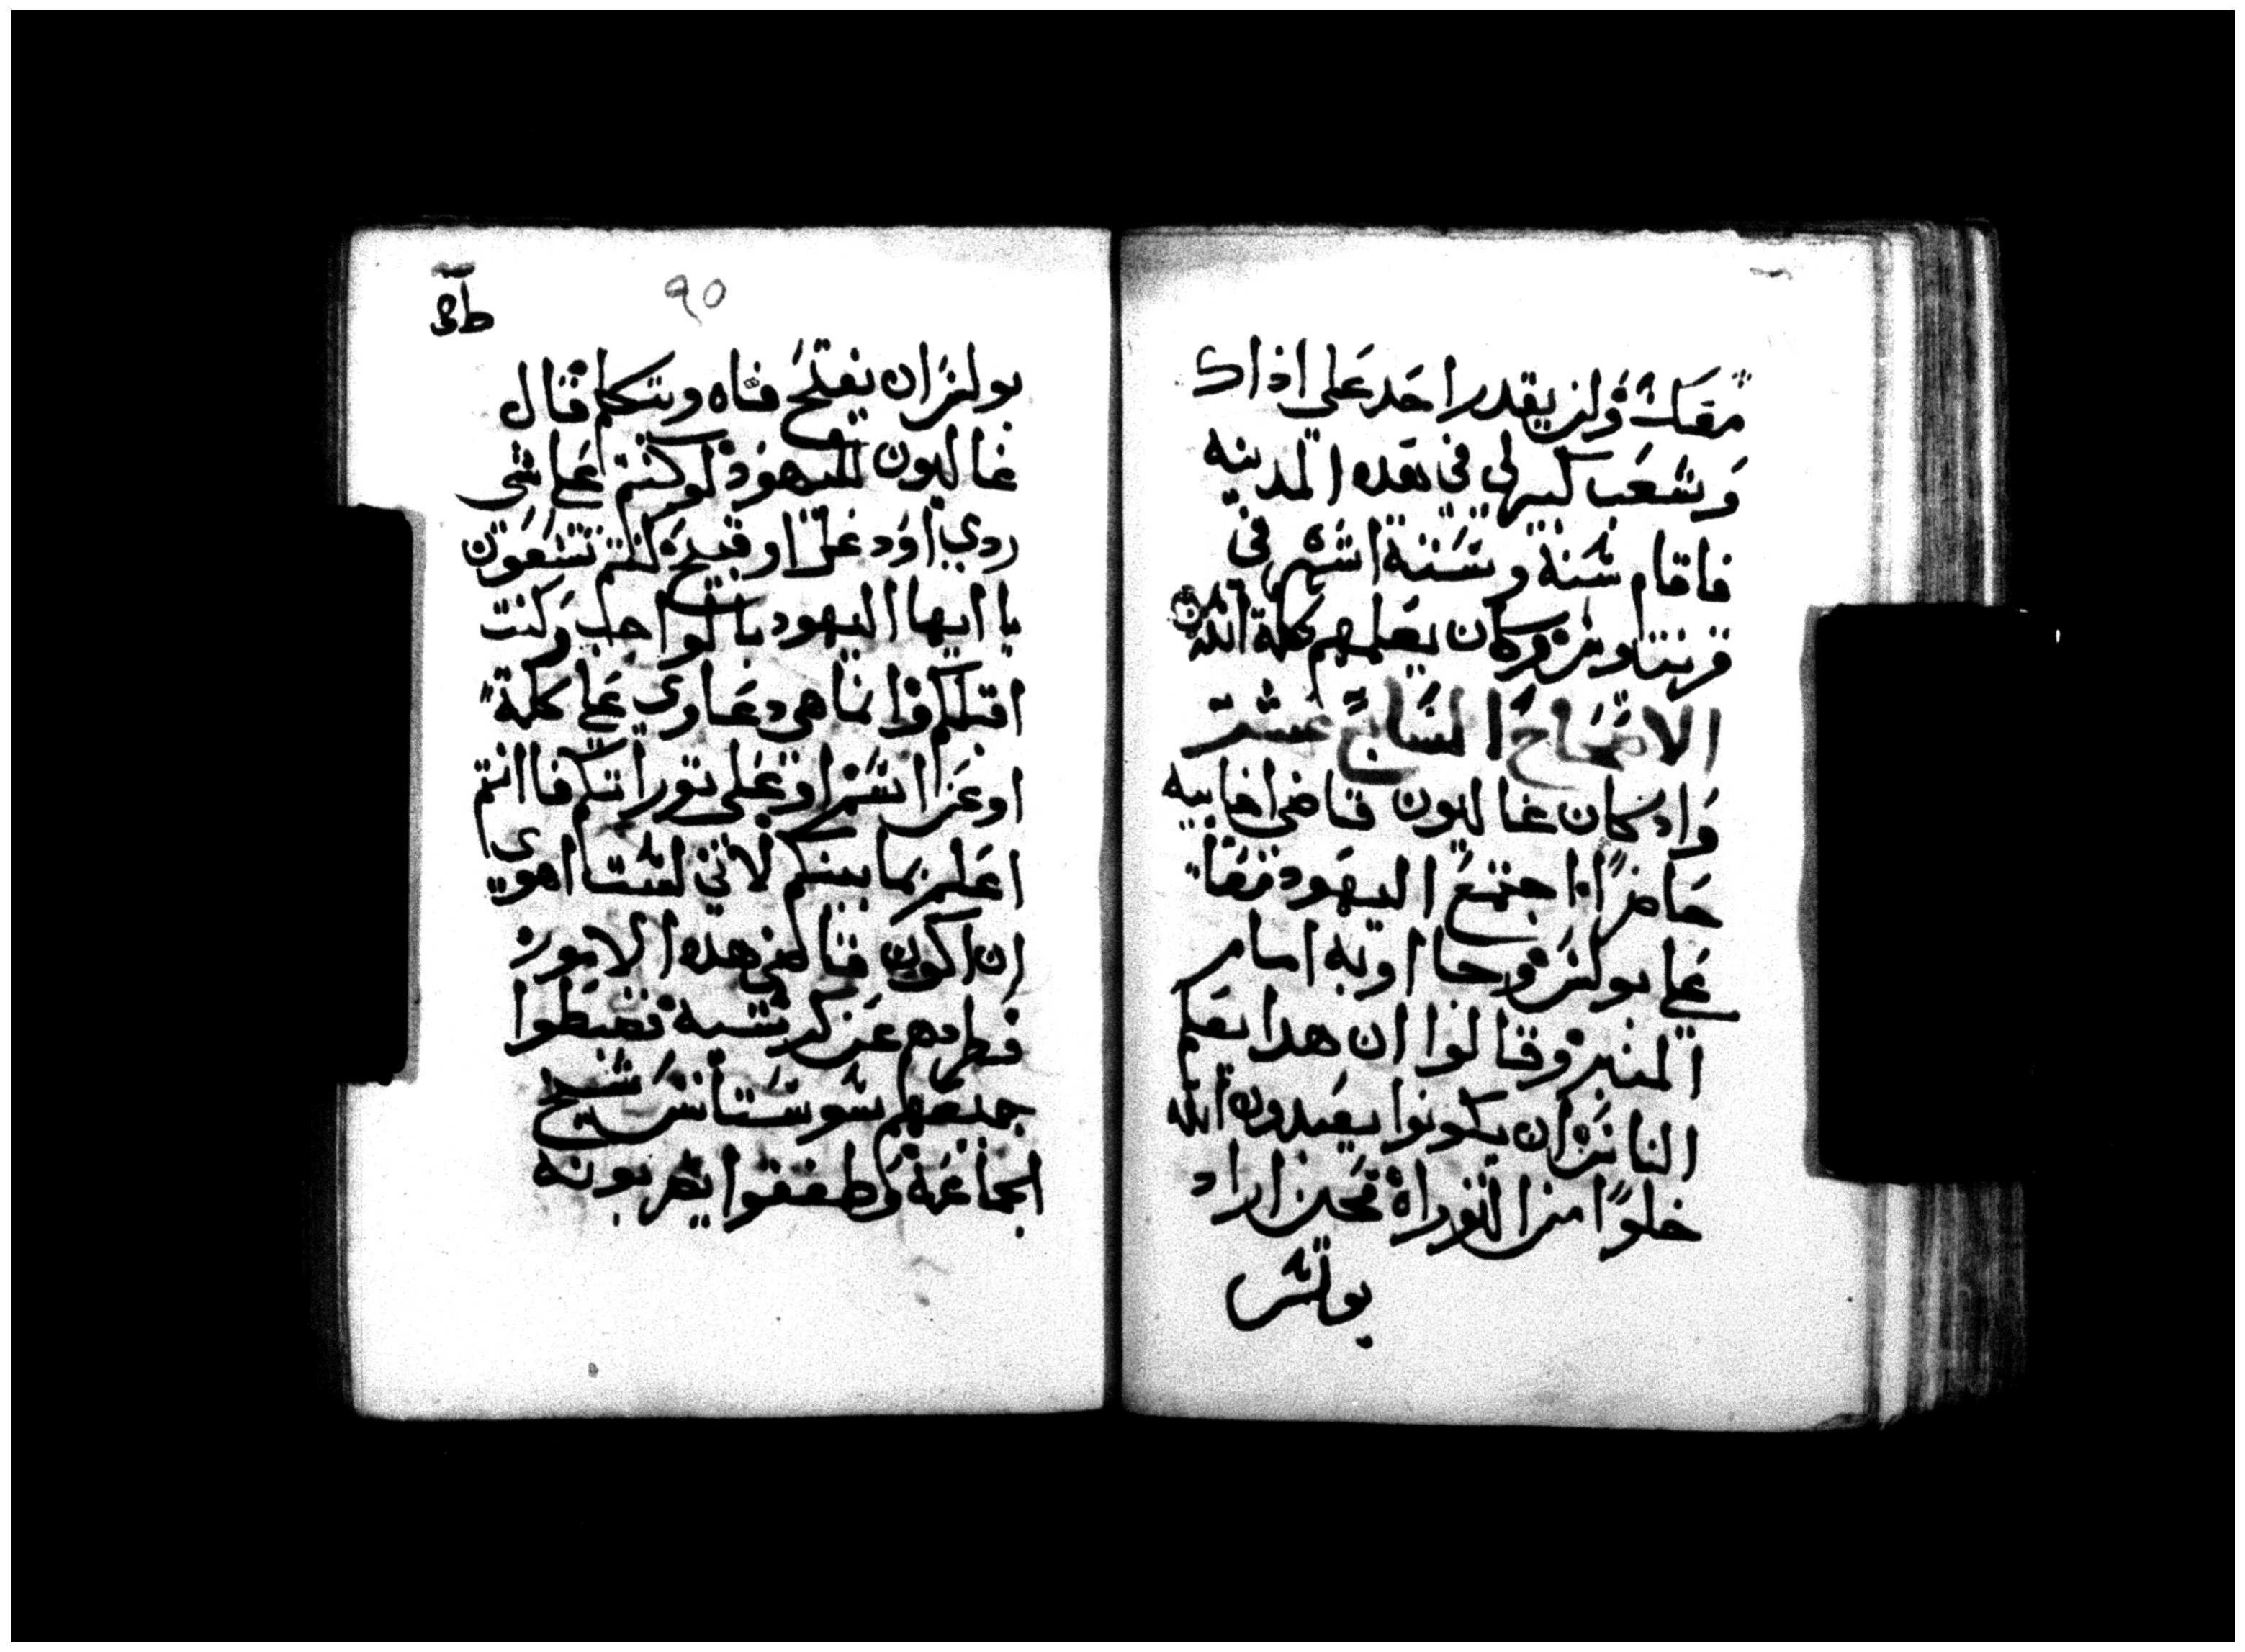 معك ولن يقدر احد علي اذاك
وشعب كبير لي في هده المدينه
فاقام سنة وستة اشهر في
قرنتاوس وكان يعلمهم كلمة الله
الاصحاح السابع عشر
واد كان غاليون قاضي اخاييه
حاضرًا اجتمع اليهود معًا
علي بولس وجااو به امام
المنبر وقالوا ان هدا يعلم
الناس ان يكونوا يعبدون الله
خلوًا من التوراة فحين اراد
بولس
٩٠
بولس ان يفتح فاه ويتكلم قال
غاليون لليهود لو كنتم علي شي
ردي او دغل او قبيح كنتم تسعون
يا ايها اليهود بالواجب وكنت
اقبلكم وانما هي دعاوي علي كلمة
او عن اسم او علي توراتكم فاانتم
اعلم بما بينكم لاني لست اهوي
ان اكون قاضي هده الامور
فطردهم عن كرسيه فضبطوا
جميعهم سوستانس شيخ
الجماعة وطفقوا يضربونه